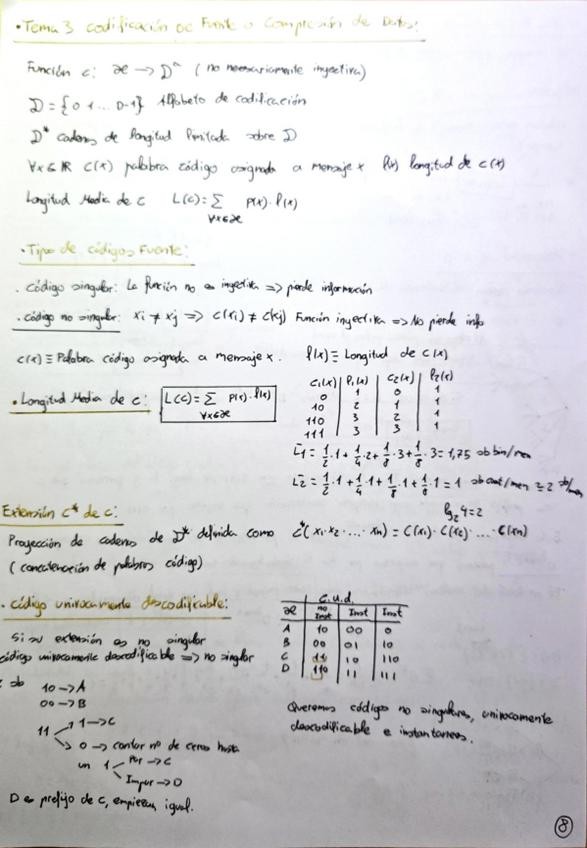 · Tema 3 codificación de Fuente o Compresión de Datos:
Función c: æ → D* (no necesariamente inyectiva)
D = {0 1 ... D-1} Alfabeto de codificación
D* cadenas de longitud limitada sobre D
∀x∈ℝ C(x) palabra código asignada a mensaje x l(x) longitud de c(x)
Longitud Media de c L(c) = ∑ P(x)·l(x)
∀x∈æ
· Tipo de códigos Fuente:
· código singular: La función no es inyectiva => pierde información
· código no singular: xi ≠ xj => c(xi) ≠ c(xj) Función inyectiva => No pierde info
c(x) ≡ Palabra código asignada a mensaje x. l(x) ≡ Longitud de c(x)
· Longitud Media de c: L(c) = ∑ P(x)·l(x)
∀x∈æ
C1(x) | l1(x) | C2(x) | l2(x)
0 | 1 | 0 | 1
10 | 2 | 1 | 1
110 | 3 | 2 | 1
111 | 3 | 3 | 1
L1 = 1/2·1 + 1/4·2 + 1/8·3 + 1/8·3 = 1,75 sb bin/men
L2 = 1/2·1 + 1/4·1 + 1/8·1 + 1/8·1 = 1 sb cuat/men = 2 sb/men
log2 4 = 2
Extensión C* de c:
Proyección de cadenas de D* definida como C*(x1·x2·...·xn) = C(x1)·C(x2)·...·C(xn)
(concatenación de palabras código)
· código unívocamente descodificable:
Si su extensión es no singular
código unívocamente descodificable => no singular
sb
10 → A
00 → B
11 → 1 → C
→ 0 → contar nº de ceros hasta
un 1 Par → C
Impar → D
D es prefijo de C, empiezan igual.
C.u.d.
æ | no Inst | Inst | Inst
A | 10 | 00 | 0
B | 00 | 01 | 10
C | 11 | 10 | 110
D | 110 | 11 | 111
Queremos códigos no singulares, unívocamente
descodificable e instantáneos.
8